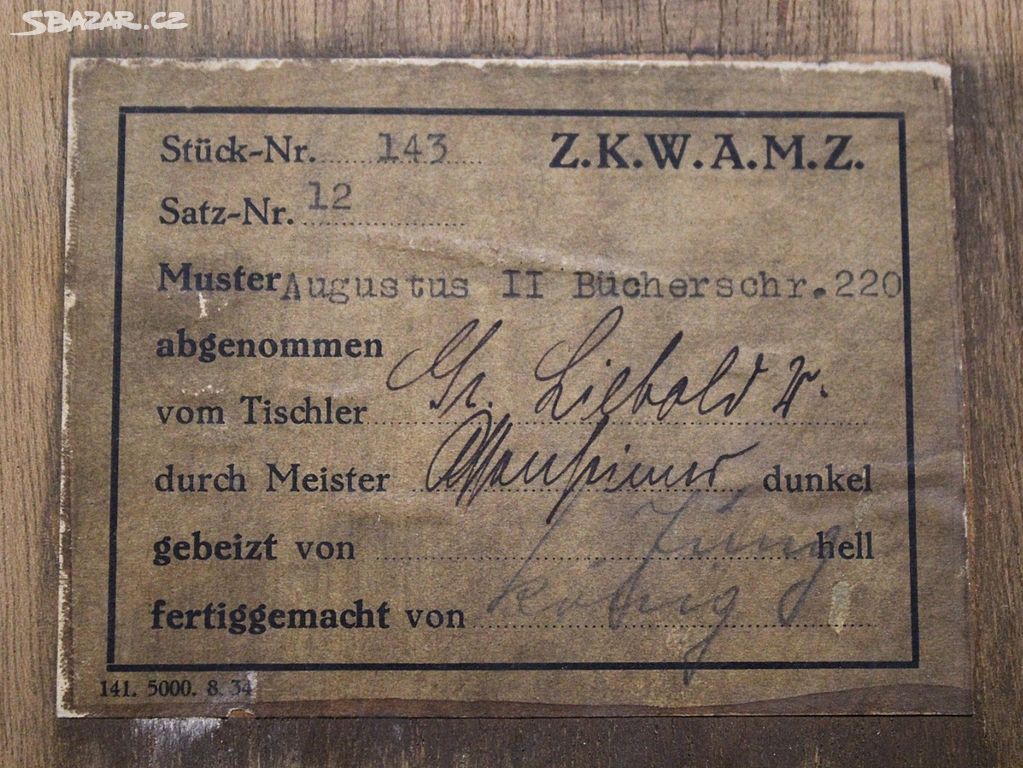 SBAZAR.CZ
Stück-Nr. 143 Z.K.W.A.M.Z.
Satz-Nr. 12
Muster Augustus II Bücherschr. 220
abgenommen
vom Tischler Liebold
durch Meister dunkel
gebeizt von Jung hell
fertiggemacht von König
141. 5000. 8. 34